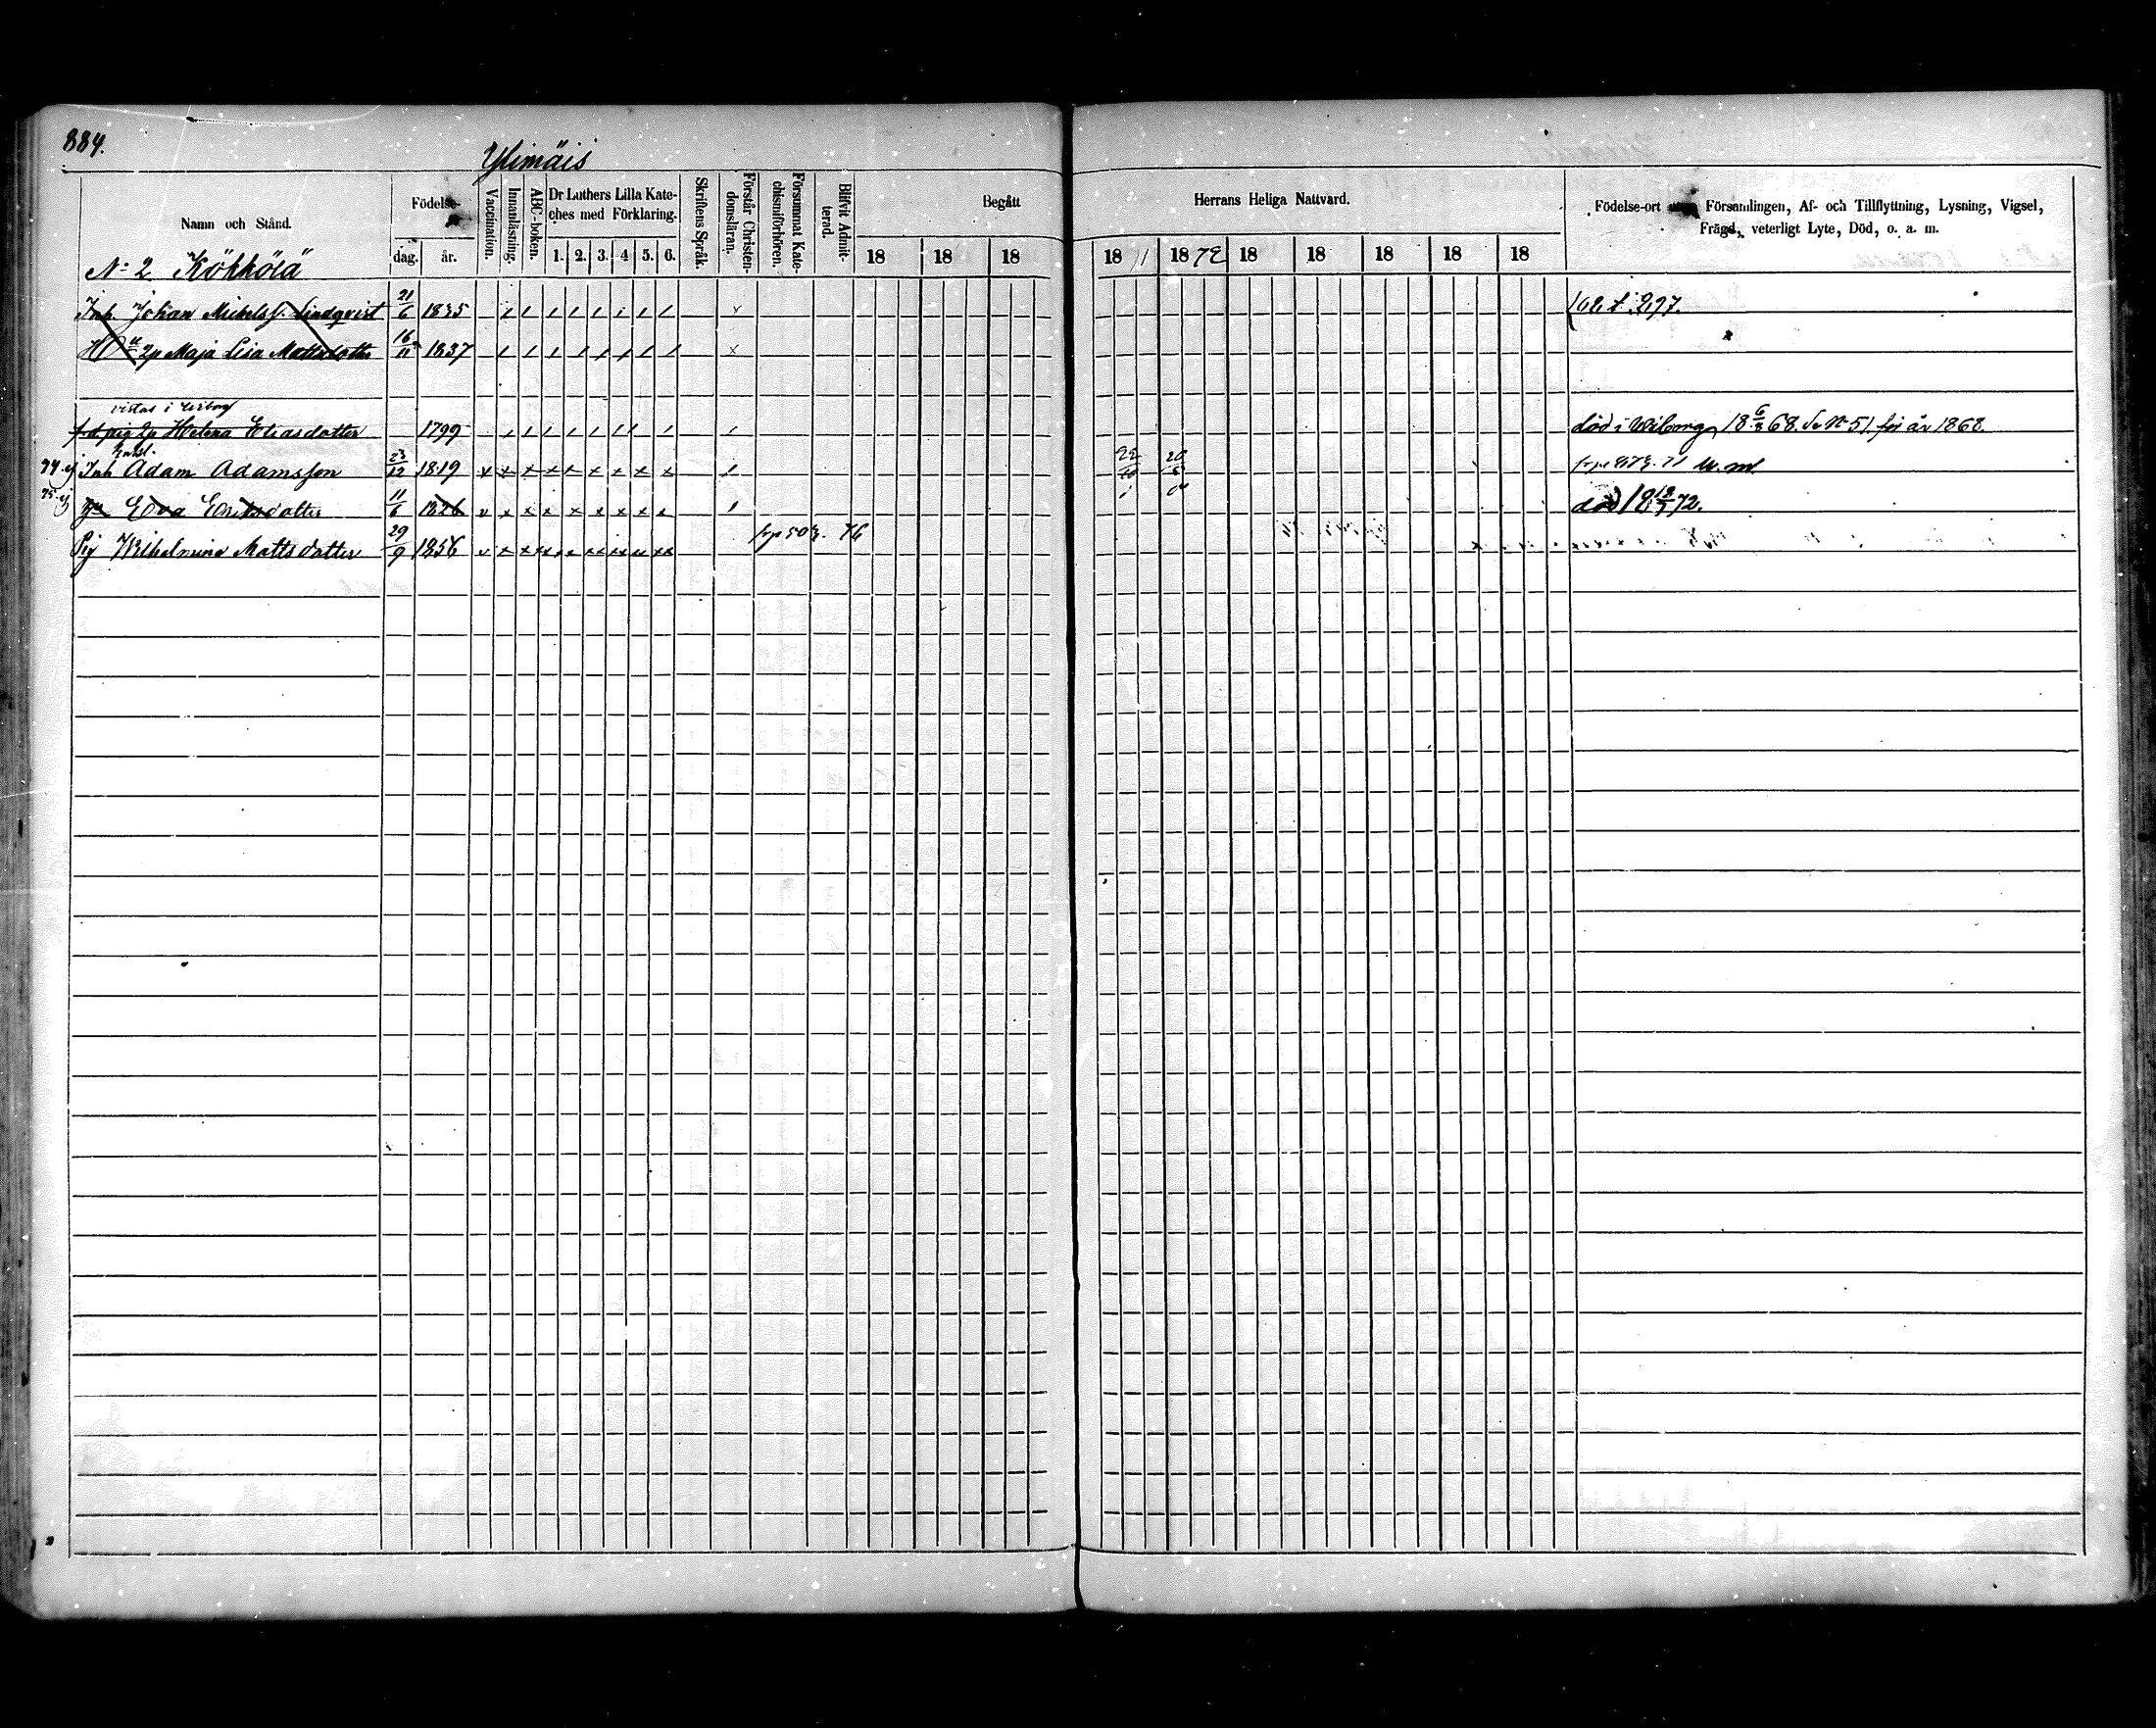 884.
Ylimäis
Namn och Stånd.
Födelse-
dag.
år.
Vaccination.
Innanläsning.
ABC-boken.
Dr Luthers Lilla Kate-
ches med Förklaring.
1. 2. 3. 4 5. 6.
Skriftens Språk.
Förstår Christen-
domsläran.
Försummat Kate-
chismiförhören.
Blifvit Admit-
terad.
Begått
18 18 18
Herrans Heliga Nattvard.
18 71 18 72 18 18 18 18 18
Födelse-ort Församlingen, Af- och Tillflyttning, Lysning, Vigsel,
Frägd, veterligt Lyte, Död, o. a. m.
No 2 Köhkölä
Inh. Johan Michelss. Lindqvist 21/6 1835
H u 2p Maja Lisa Mattsdotter 16/11 1837
vistas i Wiborg
f.d. pig 2p Helena Eliasdotter 1799 död i Wiborg 18 6/3 68. Se No 51 för år 1868
Inh Adam Adamsson 23/12 1819
Eva Eriksdotter 11/6 1826 död 18 12/7 72.
Pig Wilhelmina Mattsdotter 29/9 1856 76